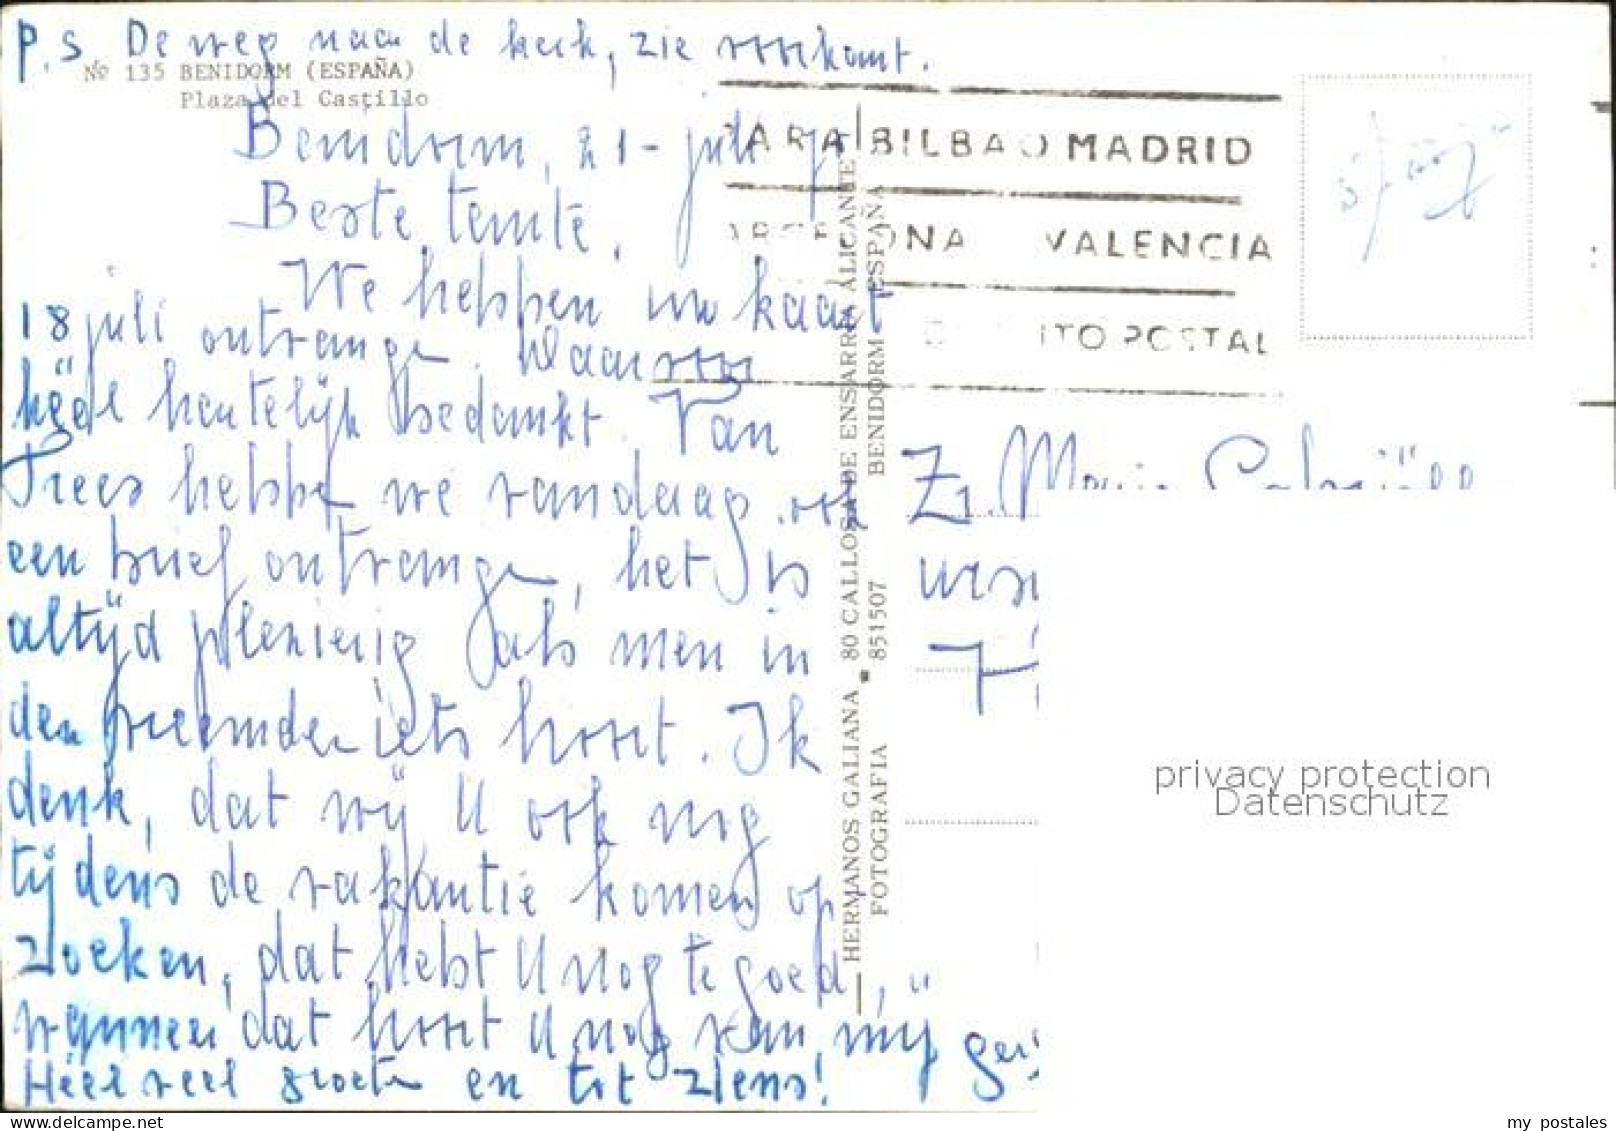 P.S. De weg naar de kerk, zie voorkant.
No 135 BENIDORM (ESPAÑA)
Plaza del Castillo
Benidorm, 21-juli
Beste tante,
We hebben uw kaart
18 juli ontvangen. Waarvoor
heel hartelijk bedankt. Van
Trees hebben we vandaag ook
een brief ontvangen, het is
altijd plezierig als men in
den vreemde iets hoort. Ik
denk, dat wij U ook nog
tijdens de vakantie komen op
zoeken, dat hebt U nog te goed,
wanneer dat hoort U nog van mij
Heel veel groeten en tot ziens!
HERMANOS GALIANA 80 CALLOSA DE ENSARRIA ALICANTE
FOTOGRAFIA 851507 BENIDORM ESPAÑA
BILBAO MADRID
VALENCIA
POSTAL
Zr. Maria
privacy protection
Datenschutz
my postales